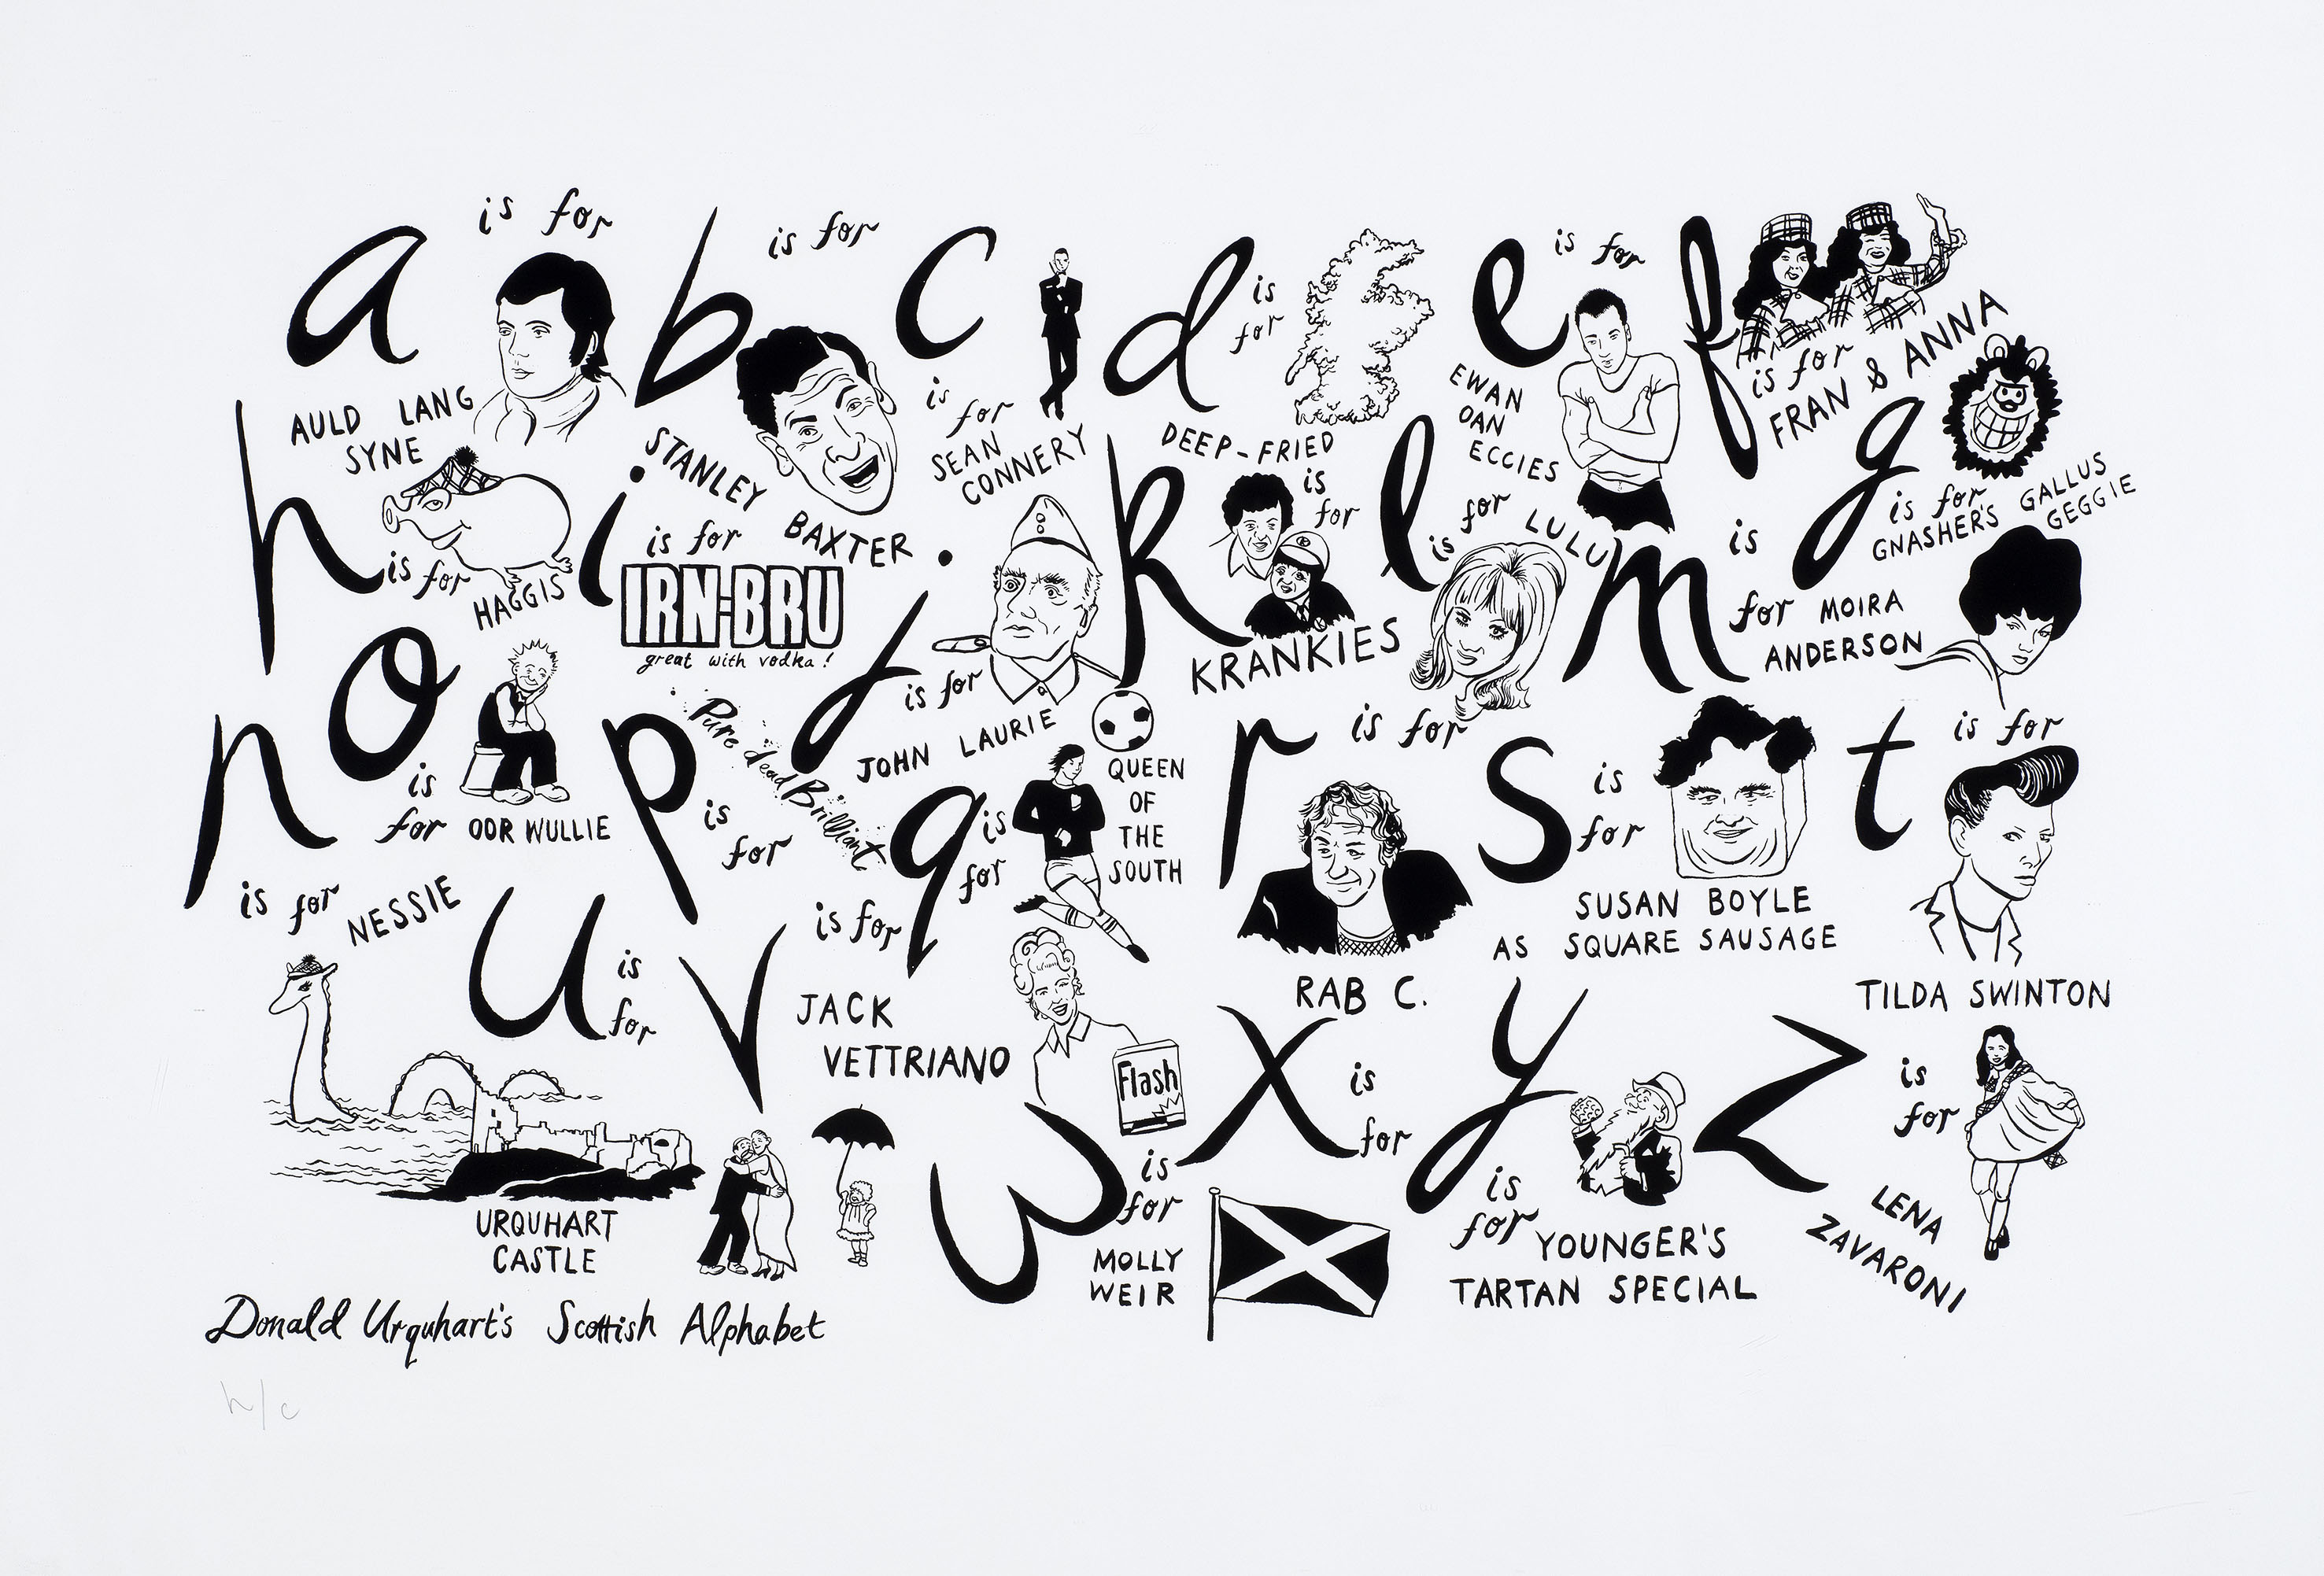 a is for
AULD LANG
SYNE
b is for
STANLEY
BAXTER
c
is
for
SEAN
CONNERY
d is
for
DEEP-FRIED
e is for
EWAN
OAN
ECCIES
f
is for
FRAN & ANNA
g
is for
GNASHER'S GALLUS
GEGGIE
h
is for
HAGGIS
i
is for
IRN-BRU
great with vodka!
j
is for
JOHN LAURIE
k is
for
K
KRANKIES
l
is for LULU
m is
for MOIRA
ANDERSON
n
is for NESSIE
o
is
for OOR WULLIE
p
is
for
Pure dead Brilliant
q is
for
QUEEN
OF
THE
SOUTH
r is for
RAB C.
s is
for
SUSAN BOYLE
AS SQUARE SAUSAGE
t is for
TILDA SWINTON
u is
for
URQUHART
CASTLE
v is for
JACK
VETTRIANO
w
is
for
MOLLY
WEIR
Flash
x is
for
y
is
for YOUNGER'S
TARTAN SPECIAL
z is
for
LENA
ZAVARONI
Donald Urquhart's Scottish Alphabet
h/c